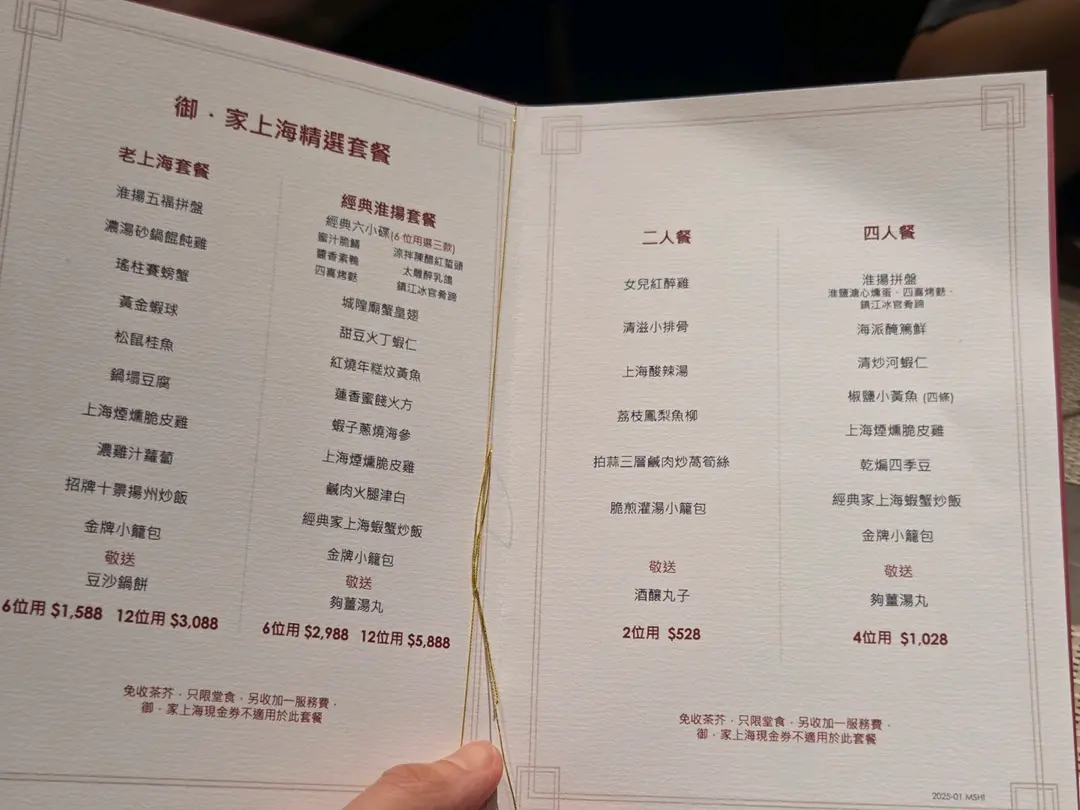 御．家上海精選套餐
老上海套餐
淮揚五福拼盤
濃湯砂鍋餛飩雞
瑤柱賽螃蟹
黃金蝦球
松鼠桂魚
鍋塌豆腐
上海煙燻脆皮雞
濃雞汁蘿蔔
招牌十景揚州炒飯
金牌小籠包
敬送
豆沙鍋餅
6位用 $1,588 12位用 $3,088
經典淮揚套餐
經典六小碟(6 位用選三款)
蜜汁脆鱔 涼拌陳醋紅蜇頭
醬香素鴨 太雕醉乳鴿
四喜烤麩 鎮江冰官肴蹄
城隍廟蟹皇翅
甜豆火丁蝦仁
紅燒年糕炆黃魚
蓮香蜜餞火方
蝦子蔥燒海參
上海煙燻脆皮雞
鹹肉火腿津白
經典家上海蝦蟹炒飯
金牌小籠包
敬送
夠薑湯丸
6位用 $2,988 12位用 $5,888
免收茶芥．只限堂食．另收加一服務費．
御．家上海現金券不適用於此套餐
二人餐
女兒紅醉雞
清滋小排骨
上海酸辣湯
荔枝鳳梨魚柳
拍蒜三層鹹肉炒萵筍絲
脆煎灌湯小籠包
敬送
酒釀丸子
2位用 $528
四人餐
淮揚拼盤
淮鹽溏心燻蛋．四喜烤麩．
鎮江冰官肴蹄
海派醃篤鮮
清炒河蝦仁
椒鹽小黃魚 (四條)
上海煙燻脆皮雞
乾煸四季豆
經典家上海蝦蟹炒飯
金牌小籠包
敬送
夠薑湯丸
4位用 $1,028
免收茶芥．只限堂食．另收加一服務費．
御．家上海現金券不適用於此套餐
2025-01 MSHI